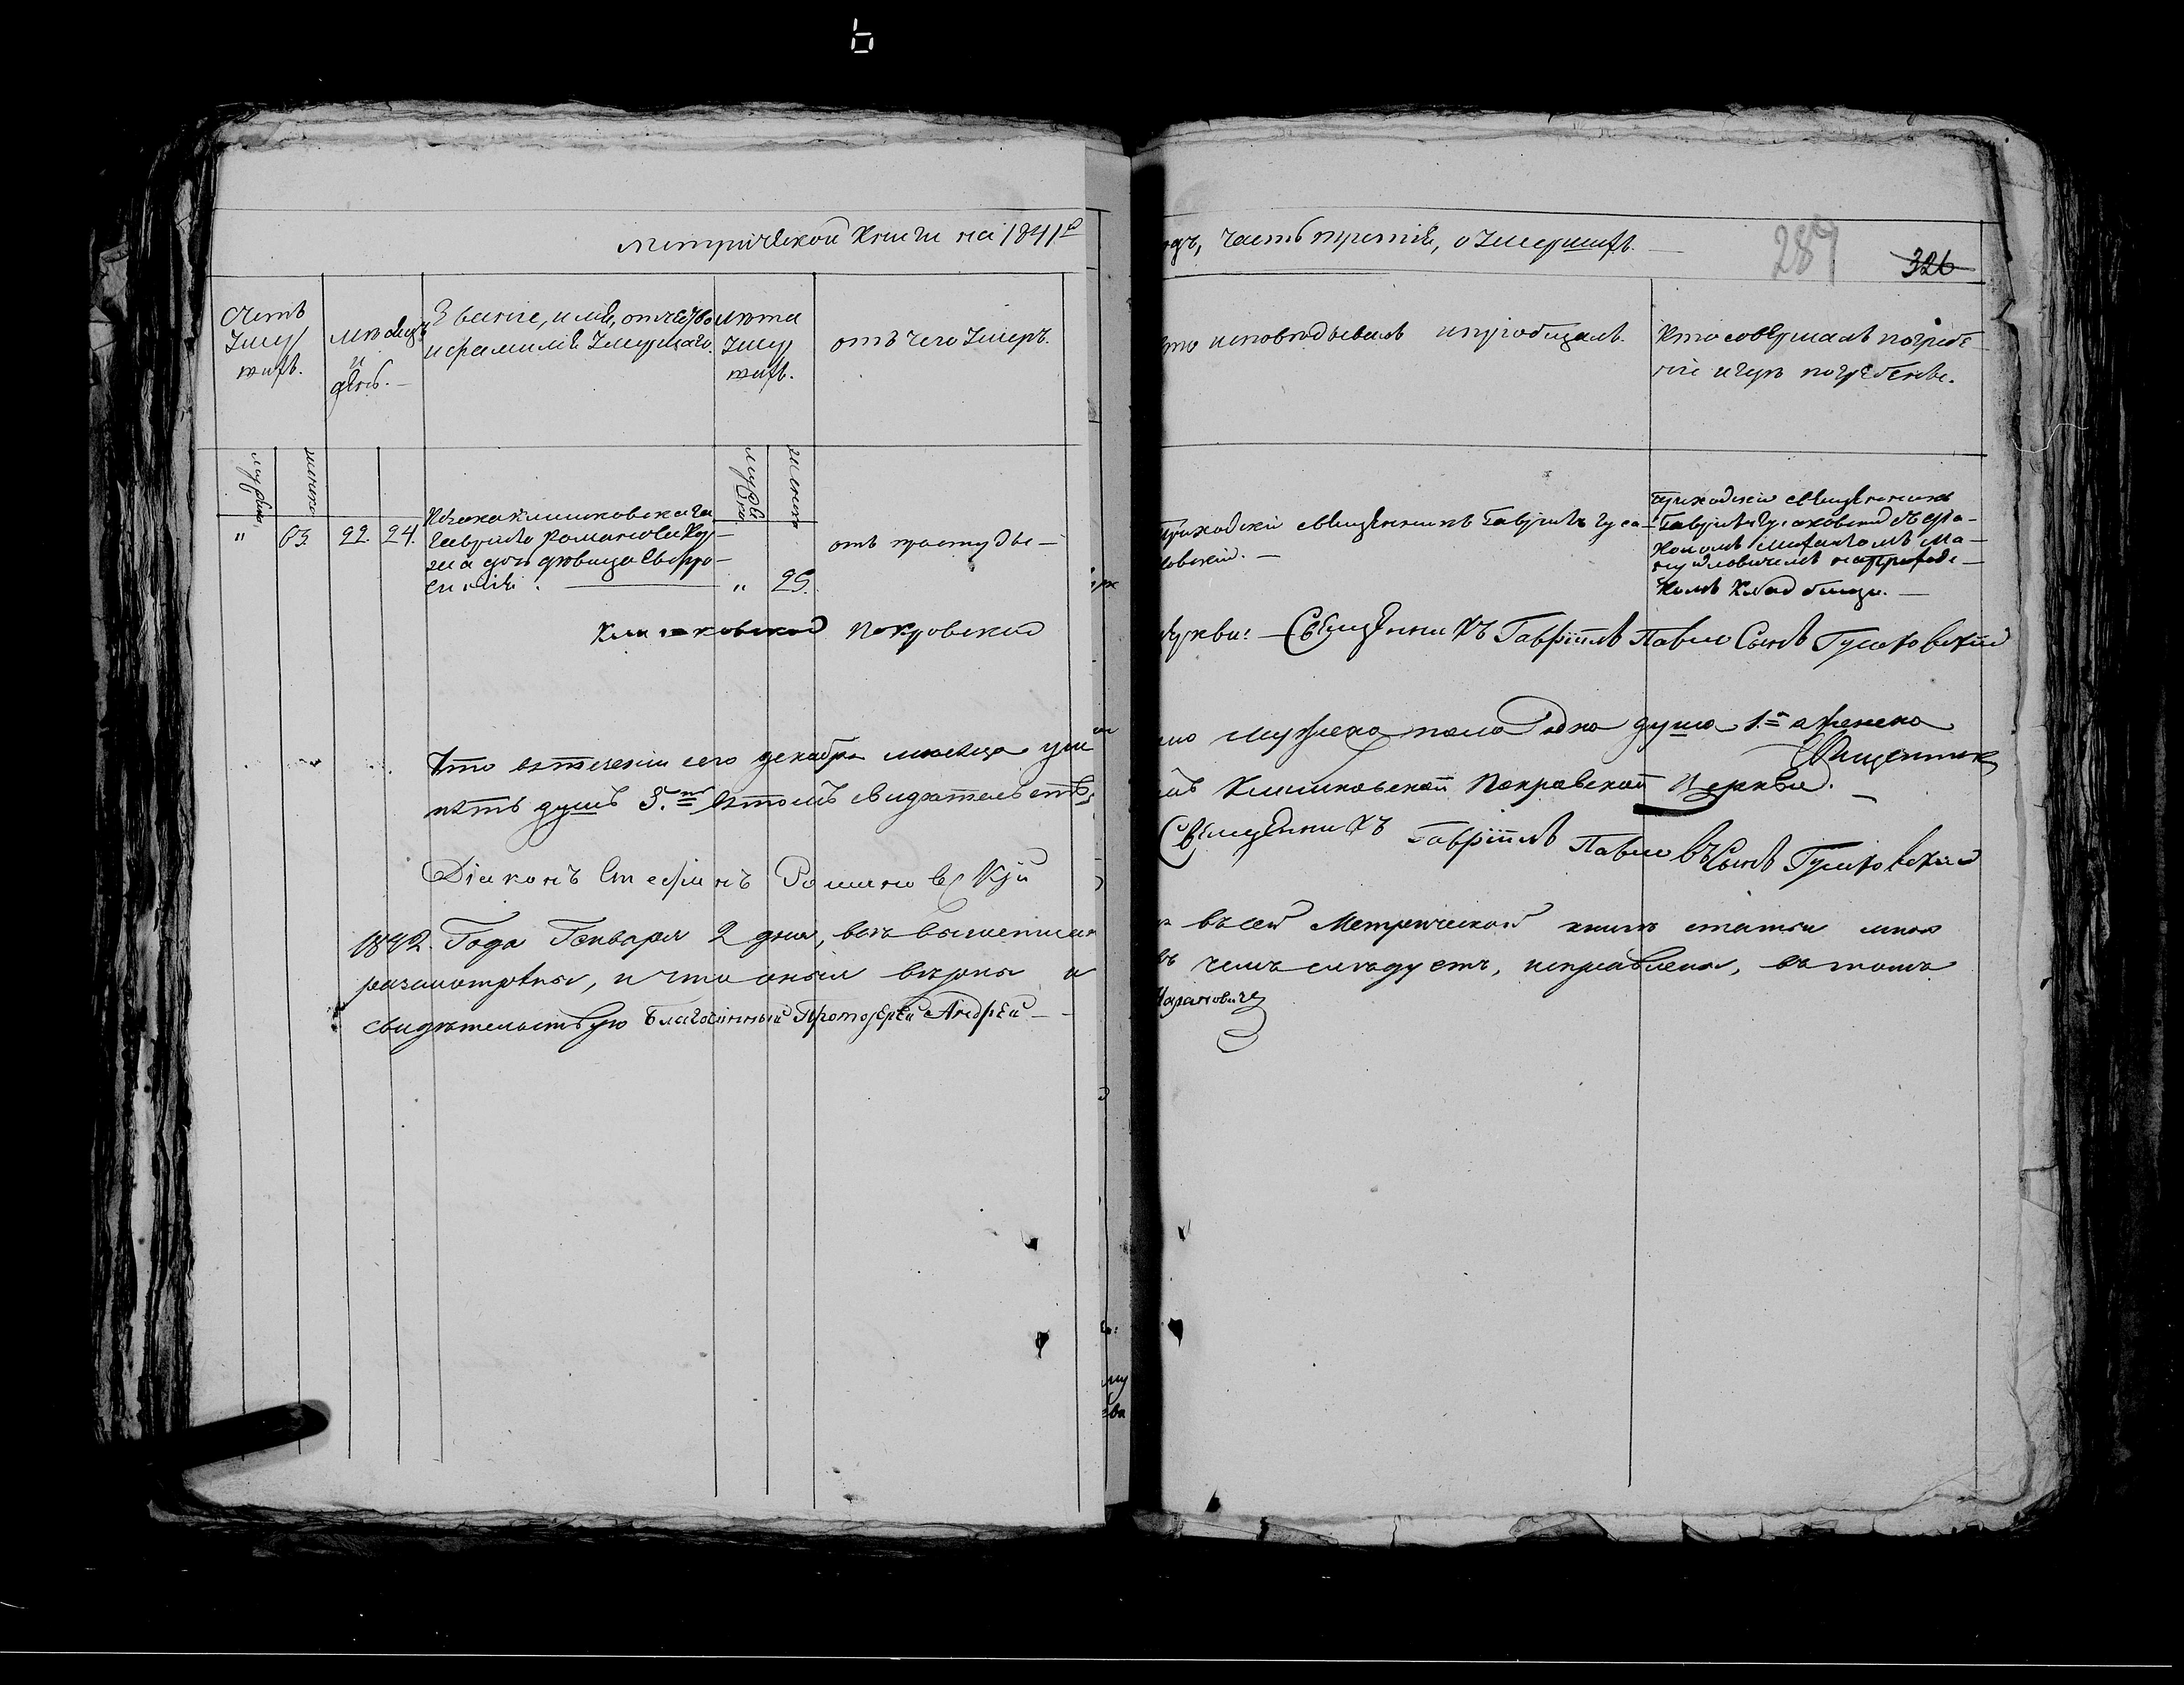 Метрической Книги на 1841й
годъ, часть третія, о Умершихъ.
287
326
Счетъ Умершихъ.
Мѣсяцъ и день.
Званіе, имя, отчество и фамилія Умершаго.
Лѣта Умершихъ.
отъ чего Умеръ.
Кто исповѣдывалъ и пріобщалъ.
Кто совершалъ погребеніе и гдѣ погребены.
мужеска
женска
мужеска
женска
" 63. 22. 24.
Козака Климковскаго
Гавріила Романова
дочь дѣвица Евфро-
синія.
" 25.
отъ простуды
Приходскій священникъ Гавріилъ Гуса-
ковскій.
Приходскій священникъ
Гавріилъ Гусаковскій съ діа-
кономъ
на приходс-
комъ кладбищѣ.
Климковской Покровской
Церкви: Священникъ Гавріилъ Павловъ Сынъ Гусаковскій
Что въ теченіи сего декабря мѣсяца
мужеска пола одна душа 1. а женска
пять душъ 5. въ томъ свидѣтельствуемъ
Климковской Покровской Церкви.
Священникъ
Священникъ Гавріилъ Павловъ Сынъ Гусаковскій
Діаконъ Стефанъ Романовскій
1842 Года Генваря 2 дня, всѣ вышеписанныя
въ сей Метрической книгѣ статьи мною
разсмотрены, и что оныя вѣрны и
въ чемъ слѣдуетъ, исправлены, въ томъ
свидѣтельствую Благочинный Протоіерей Андрей